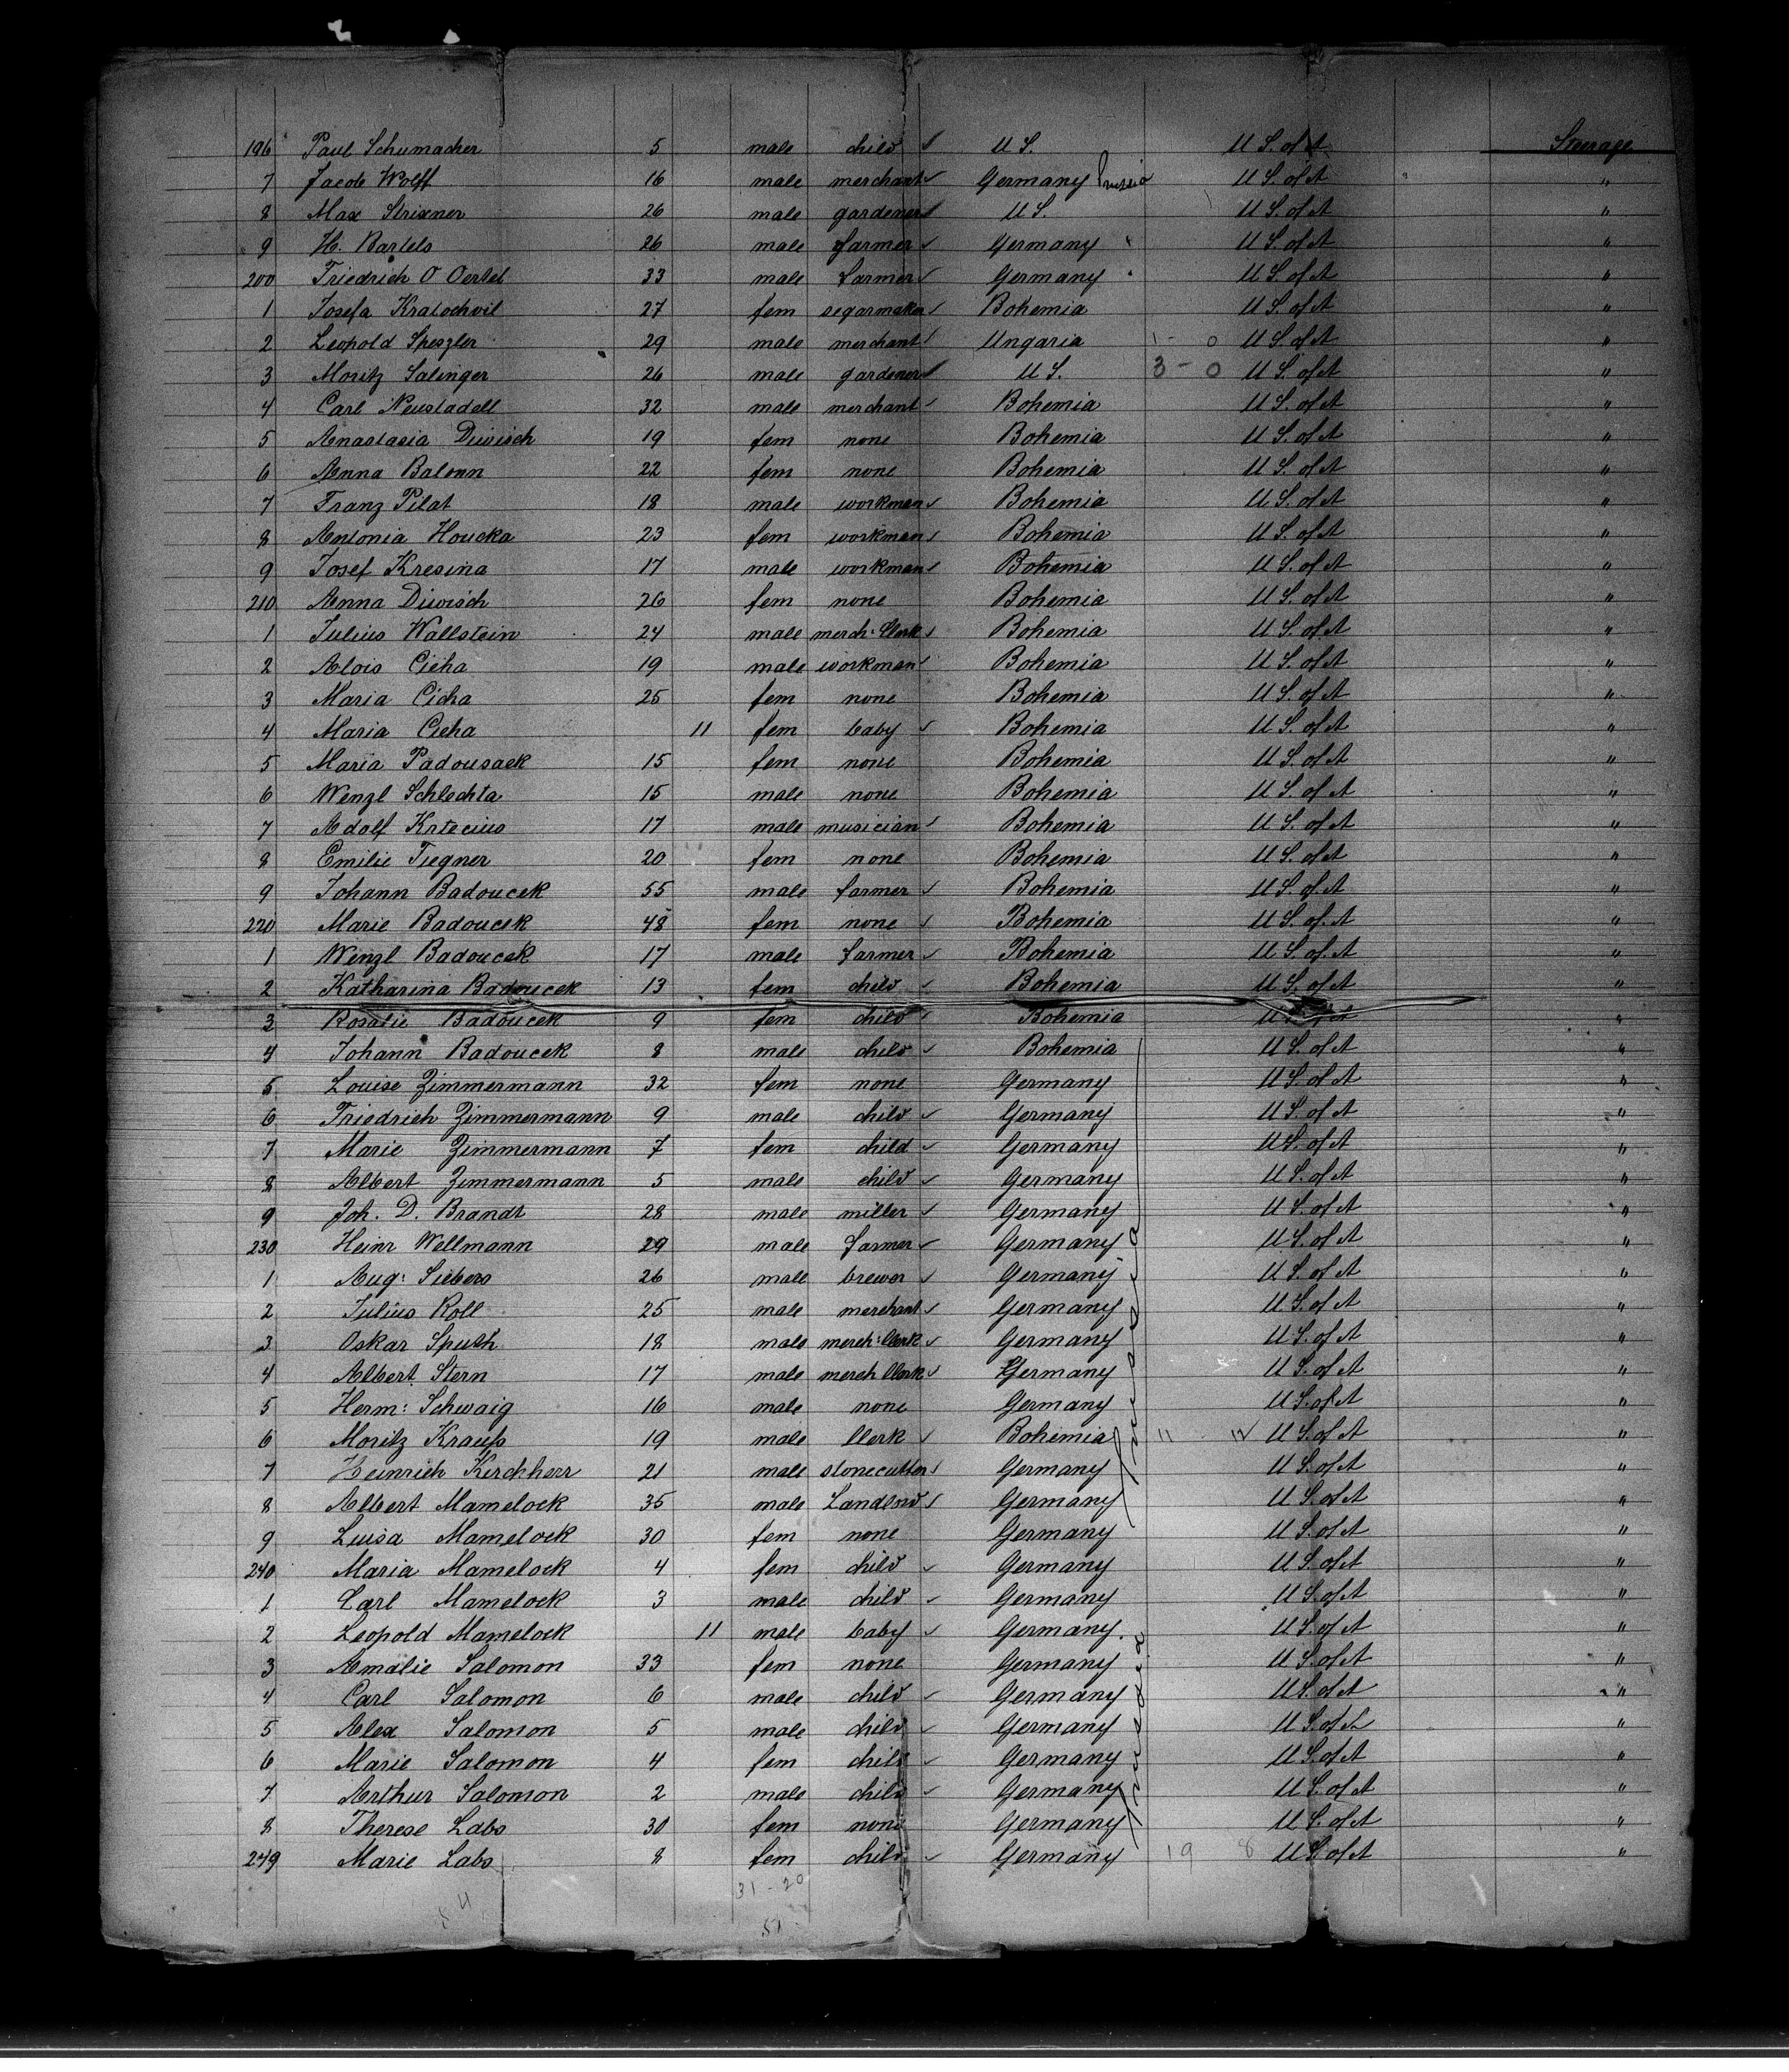 196 Paul Schumacher 5 male child ✓ U S. U S. of A Steerage
7 Jacob Wolff 16 male merchant ✓ Germany Prussia U S. of A "
8 Max Strixner 26 male gardener ✓ U S. U S. of A "
9 H. Bartels 26 male farmer ✓ Germany U S. of A "
200 Friedrich O Oertel 33 male farmer ✓ Germany " U S. of A "
1 Josefa Kratochvil 27 fem segarmaker ✓ Bohemia U S. of A "
2 Leopold Speszler 29 male merchant ✓ Ungaria 1 - 0 U S. of A "
3 Moritz Salinger 26 male gardener ✓ U S. 3 - 0 U S. of A "
4 Carl Neustadell 32 male merchant ✓ Bohemia U S. of A "
5 Anastasia Diwisch 19 fem none Bohemia U S. of A "
6 Anna Balonn 22 fem none Bohemia U S. of A "
7 Franz Pilat 18 male workman ✓ Bohemia U S. of A "
8 Antonia Houcka 23 fem workman ✓ Bohemia U S. of A "
9 Josef Kresina 17 male workman ✓ Bohemia U S. of A "
210 Anna Diwisch 26 fem none Bohemia U S. of A "
1 Julius Wallstein 24 male merch: Clerk ✓ Bohemia U S. of A "
2 Alois Cicha 19 male workman ✓ Bohemia U S. of A "
3 Maria Cicha 25 fem none Bohemia U S. of A "
4 Maria Cicha 11 fem baby ✓ Bohemia U S. of A "
5 Maria Padousaek 15 fem none Bohemia U S. of A "
6 Wenzl Schlechta 15 male none Bohemia U S. of A "
7 Adolf Krtecius 17 male musician ✓ Bohemia U S. of A "
8 Emilie Tiegner 20 fem none Bohemia U S. of A "
9 Johann Badoucek 55 male farmer ✓ Bohemia U S. of A "
220 Marie Badoucek 48 fem none ✓ Bohemia U S. of A "
1 Wenzl Badoucek 17 male farmer ✓ Bohemia U S. of A "
2 Katharina Badoucek 13 fem child ✓ Bohemia U S. of A "
3 Rosalie Badoucek 9 fem child ✓ Bohemia U S. of A "
4 Johann Badoucek 8 male child ✓ Bohemia U S. of A "
5 Louise Zimmermann 32 fem none Germany U S. of A "
6 Friedrich Zimmermann 9 male child ✓ Germany U S. of A "
7 Marie Zimmermann 7 fem child ✓ Germany U S. of A "
8 Albert Zimmermann 5 male child ✓ Germany U S. of A "
9 Joh. D. Brandt 28 male miller ✓ Germany U S. of A "
230 Heinr Wellmann 29 male farmer ✓ Germany U S. of A "
1 Aug: Siebers 26 male brewer ✓ Germany U S. of A "
2 Julius Roll 25 male merchant ✓ Germany U S. of A "
3 Oskar Sputh 18 male merch: Clerk ✓ Germany U S. of A "
4 Albert Stern 17 male merch Clerk ✓ Germany U S. of A "
5 Herm: Schwaig 16 male none Germany U S. of A "
6 Moritz Krauß 19 male Clerk ✓ Bohemia 11 12 U S. of A "
7 Heinrich Kerchherr 21 male stonecutter ✓ Germany U S. of A "
8 Albert Mamelock 35 male Landlord ✓ Germany Prussia U S. of A "
9 Luisa Mamelock 30 fem none Germany U S. of A "
240 Maria Mamelock 4 fem child ✓ Germany U S. of A "
1 Carl Mamelock 3 male child ✓ Germany U S. of A "
2 Leopold Mamelock 11 male baby ✓ Germany U S. of A "
3 Amalie Salomon 33 fem none Germany U S. of A "
4 Carl Salomon 6 male child ✓ Germany U S. of A "
5 Alex Salomon 5 male child ✓ Germany U S. of A "
6 Marie Salomon 4 fem child ✓ Germany U S. of A "
7 Arthur Salomon 2 male child ✓ Germany U S. of A "
8 Therese Labs 30 fem none Germany Prussia U S. of A "
249 Marie Labs 8 fem child ✓ Germany 19 8 U S. of A "
31 - 20
51